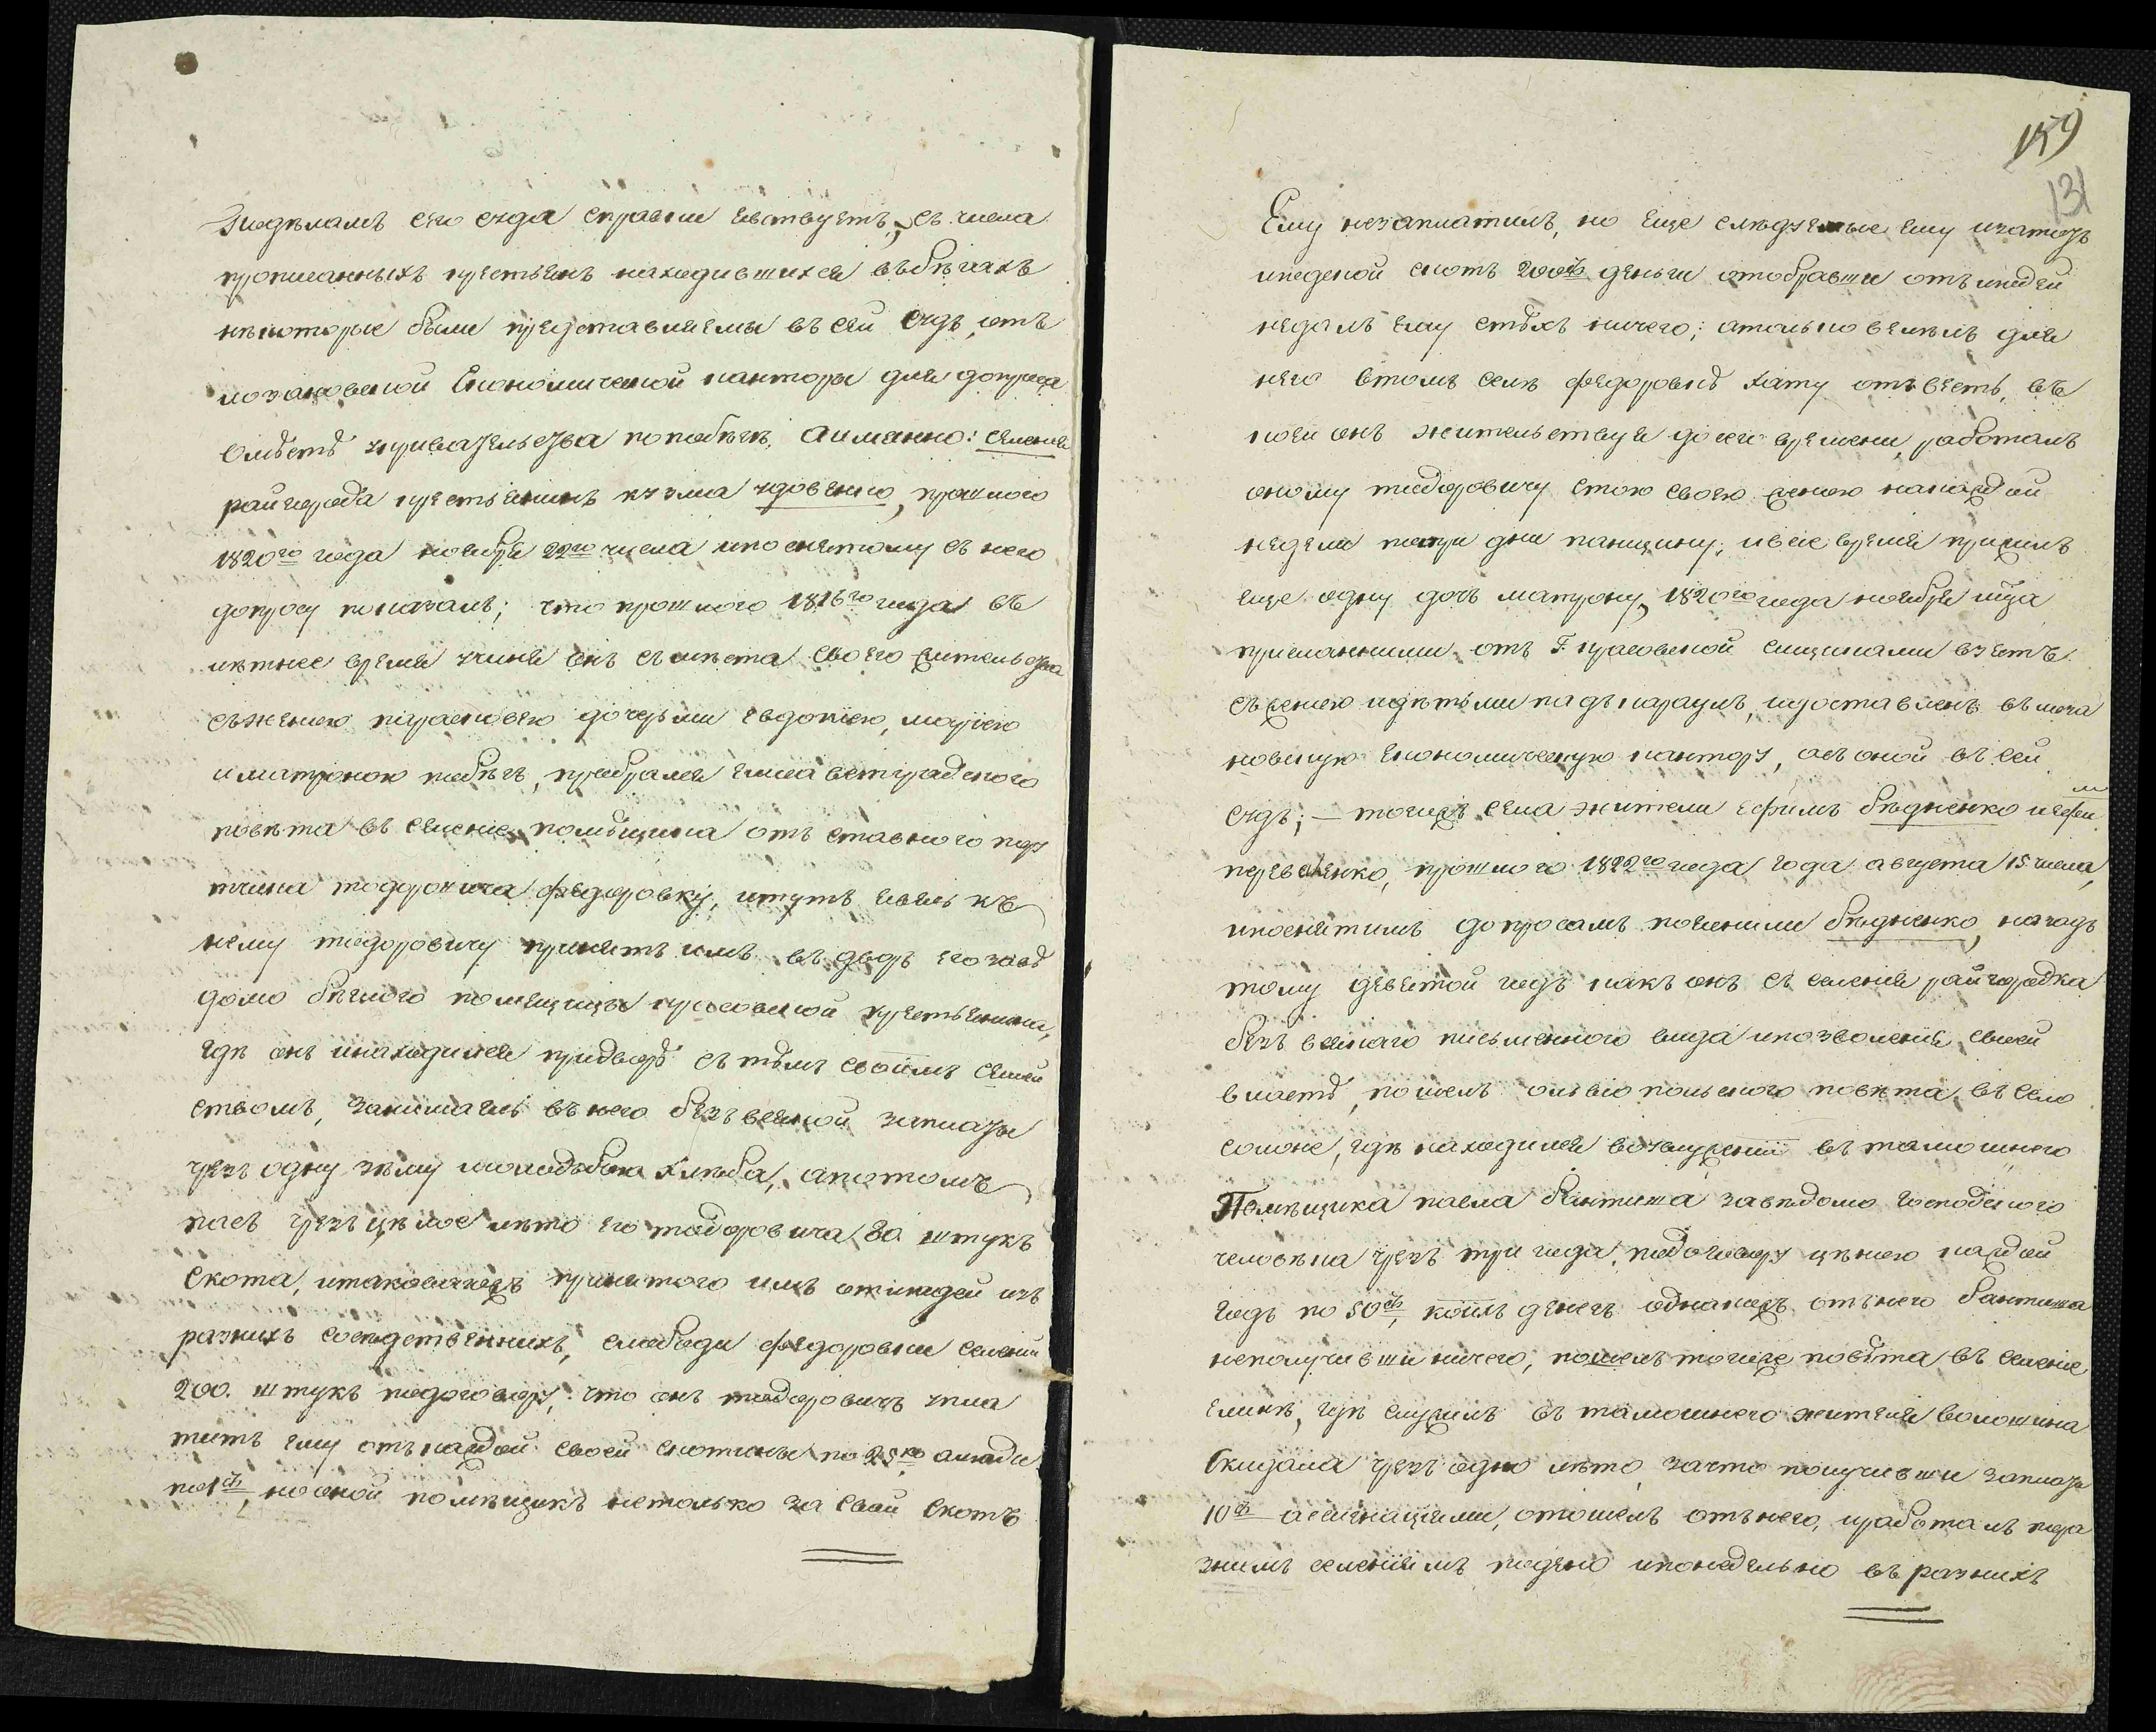 Поделамъ сего суда справки явствуетъ, съ числа
прописанныхъ крестьянъ находившихся въбегахъ
некоторые были представляемы въ сей судъ, отъ
мочановской Економической канторы для допроса
вместе жительства попобеги, Аименно: селения
райгорода крестьянинъ кузма удовенко, прошлого
1820го года ноября 22го числа ипоснятому съ него
допросу показалъ; что прошлого 1816го года въ
летнее время зшедъ онъ съместа своего жительства
съженою парасковею дочерьми евдокiею, марiею
иматроною побегъ, пробрался елисаветградского
повета въ селение помещика отъ ставного пору
тчика тодоровича федоровку, итутъ явясь къ
нему тодоровичу принятъ имъ въ дворъ его завѣ
домо беглого помещицы красовской крестьянина,
где онъ инаходился придворѣ съ темъ своимъ семей
ствомъ, занимаясь внего безъ всякой заплаты
чрезъ одну зиму молодьбою хлеба, апотомъ
пасъ чрезъ целое лето его тодоровича 80 штукъ
Скота, итаковажъ принятого имъ отлюдей изъ
разныхъ соседственныхъ, слободи федоровки селений
200. штукъ подоговору, что онъ тодоровичъ упла
титъ ему откаждой своей скотины по 25ко алюдской
по1р, но оной помещикъ нетолько за свой Скотъ
159
131
Ему незаплатилъ, но Еще следуемые ему изатотъ
людской скотъ 200р деньги отобравши отълюдей
недалъ ему стехъ ничего; атолько велелъ для
него втомъ селе федоровке хату отвесть, въ
коей онъ жительствуя досего времени, работалъ
оному тодоровичу стою своею женою накаждой
неделе потри дни панщину; ивсе время прижилъ
еще одну дочъ матрону, 1820го года ноября мца
присланними отъ Г. красовской сищиками взятъ
съженою идетьми падъ караулъ, идоставленъ въмоча
новскую економическую кантору, асъ оной въ сей
судъ; — тогожъ села жители ефимъ бедненко и
перевяенко, прошлого 1822го года года августа 15 числа,
ипоснятимъ допросамъ пояснили бедненко, назадъ
тому девятой годъ какъ онъ съ селения райгородка
безъ всякаго письменного вида ипозволения своей
власти, пошелъ ольвiопольского повета, въ село
солоне, где находился вслужении въ тамошнего
Помещика павла бантиша заведомо господского
человека чрезъ три года, подоговору ценою каждой
годъ по 50р, коихъ денегъ однакожъ отнего бантиша
неполучивши ничего, пошелъ тогоже повѣта въ селение
еланк, где служилъ въ тамошнего жителя волошина
чрезъ одно лето, зачто получивши заплаты
10р асигнациями, отошелъ отънего, иработалъ пора
знимъ селениямъ поденно ипонедельно въ разнихъ